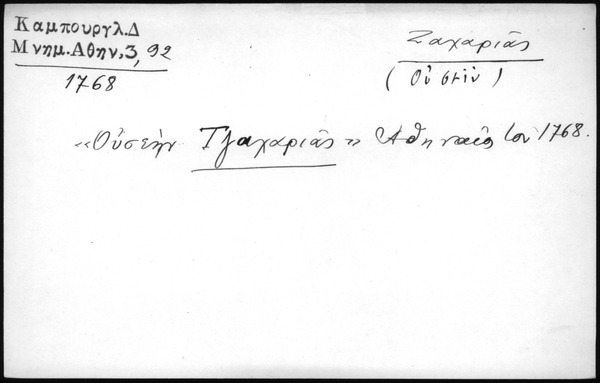 Καμπουργλ.Δ
Μνημ.Αθην,3, 92
1768
Ζαχαριᾶς
(Οὐσεὶν)
«Οὐσεὴν Τζαχαριᾶς» Ἀθηναῖος τοῦ 1768.